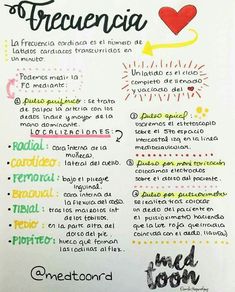 Frecuencia
La Frecuencia cardiaca es el número de
latidos cardiacos transcurridos en
un minuto.
Podemos medir la
FC mediante:
① Pulso periférico: se trata
de palpar la arteria con los
dedos índice y mayor de la
mano dominante.
LOCALIZACIONES:
Radial: cara interna de la
muñeca.
Carotídeo: lateral del cuello.
Femoral: bajo el pliegue
inguinal.
Braquial: cara interna de
la flexura del codo.
Tibial: tras los maleolos int
de los tobillos.
Pedio: en la parte alta del
dorso del pie.
Poplíteo: hueco que forman
las rodillas al flex.
@medtoonrd
Un latido es el ciclo
completo de llenado
y vaciado del
② Pulso apical:
ponemos el estetoscopio
sobre el 5to espacio
intercostal izq en la línea
medioclavicular.
③ Pulso por monitorización
colocamos electrodos
sobre el dorso del paciente.
④ Pulso por pulsioximetro
se realiza tras colocar
un dedo del paciente en
el pulsioximetro haciendo
que la luz roja querriodica
coincida con el dedo,
med
toon